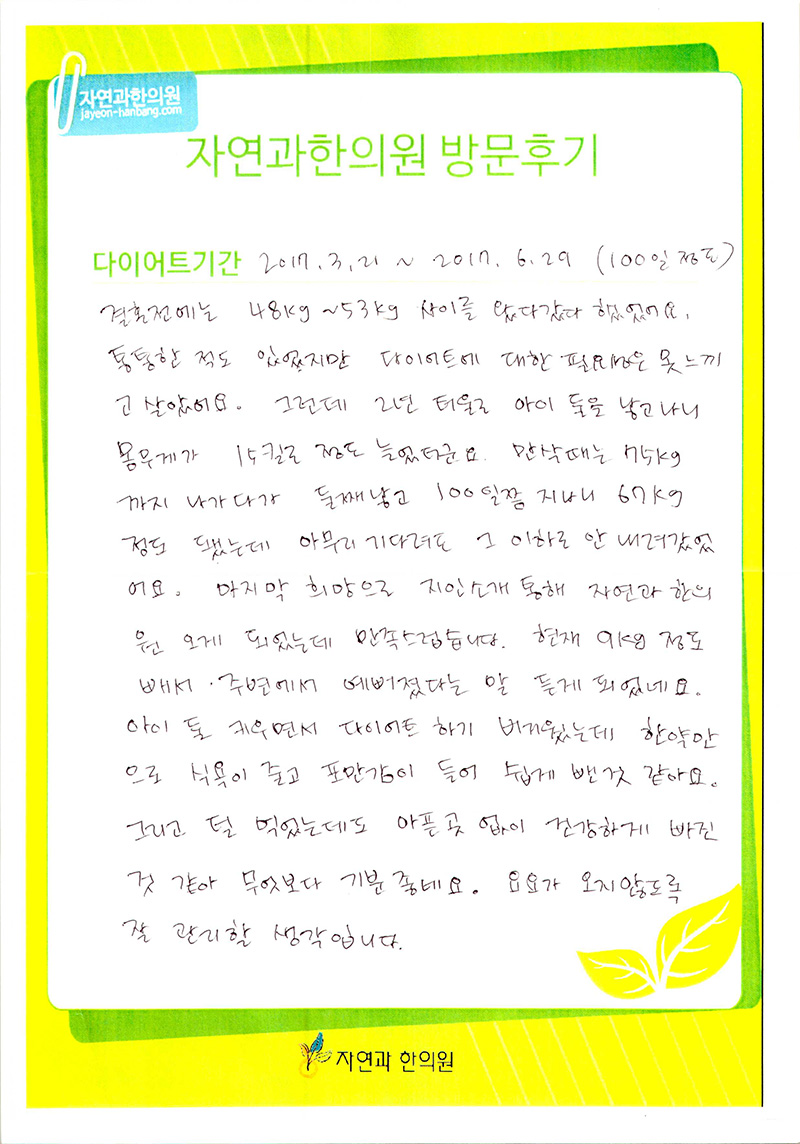 자연과한의원
jayeon-hanbang.com
자연과한의원 방문후기
다이어트기간 2017.3.21 ~ 2017.6.29 (100일 정도)
결혼전에는 48kg ~53kg 사이를 왔다갔다 했었어요.
통통한 적도 있었지만 다이어트에 대한 필요성은 못느끼
고 살았어요. 그런데 2년 터울로 아이 둘을 낳고나니
몸무게가 15킬로 정도 늘었더군요. 만삭때는 75kg
까지 나가다가 둘째낳고 100일쯤 지나니 67kg
정도 됐는데 아무리 기다려도 그 이하로 안 내려갔었
어요. 마지막 희망으로 지인소개 통해 자연과 한의
원 오게 되었는데 만족스럽습니다. 현재 9kg 정도
빼서 주변에서 예뻐졌다는 말 듣게 되었네요.
아이 둘 키우면서 다이어트 하기 버거웠는데 한약만
으로 식욕이 줄고 포만감이 들어 쉽게 뺀것 같아요.
그리고 덜 먹었는데도 아픈곳 없이 건강하게 빠진
것 같아 무엇보다 기분좋네요. 요요가 오지않도록
잘 관리할 생각입니다.
자연과 한의원